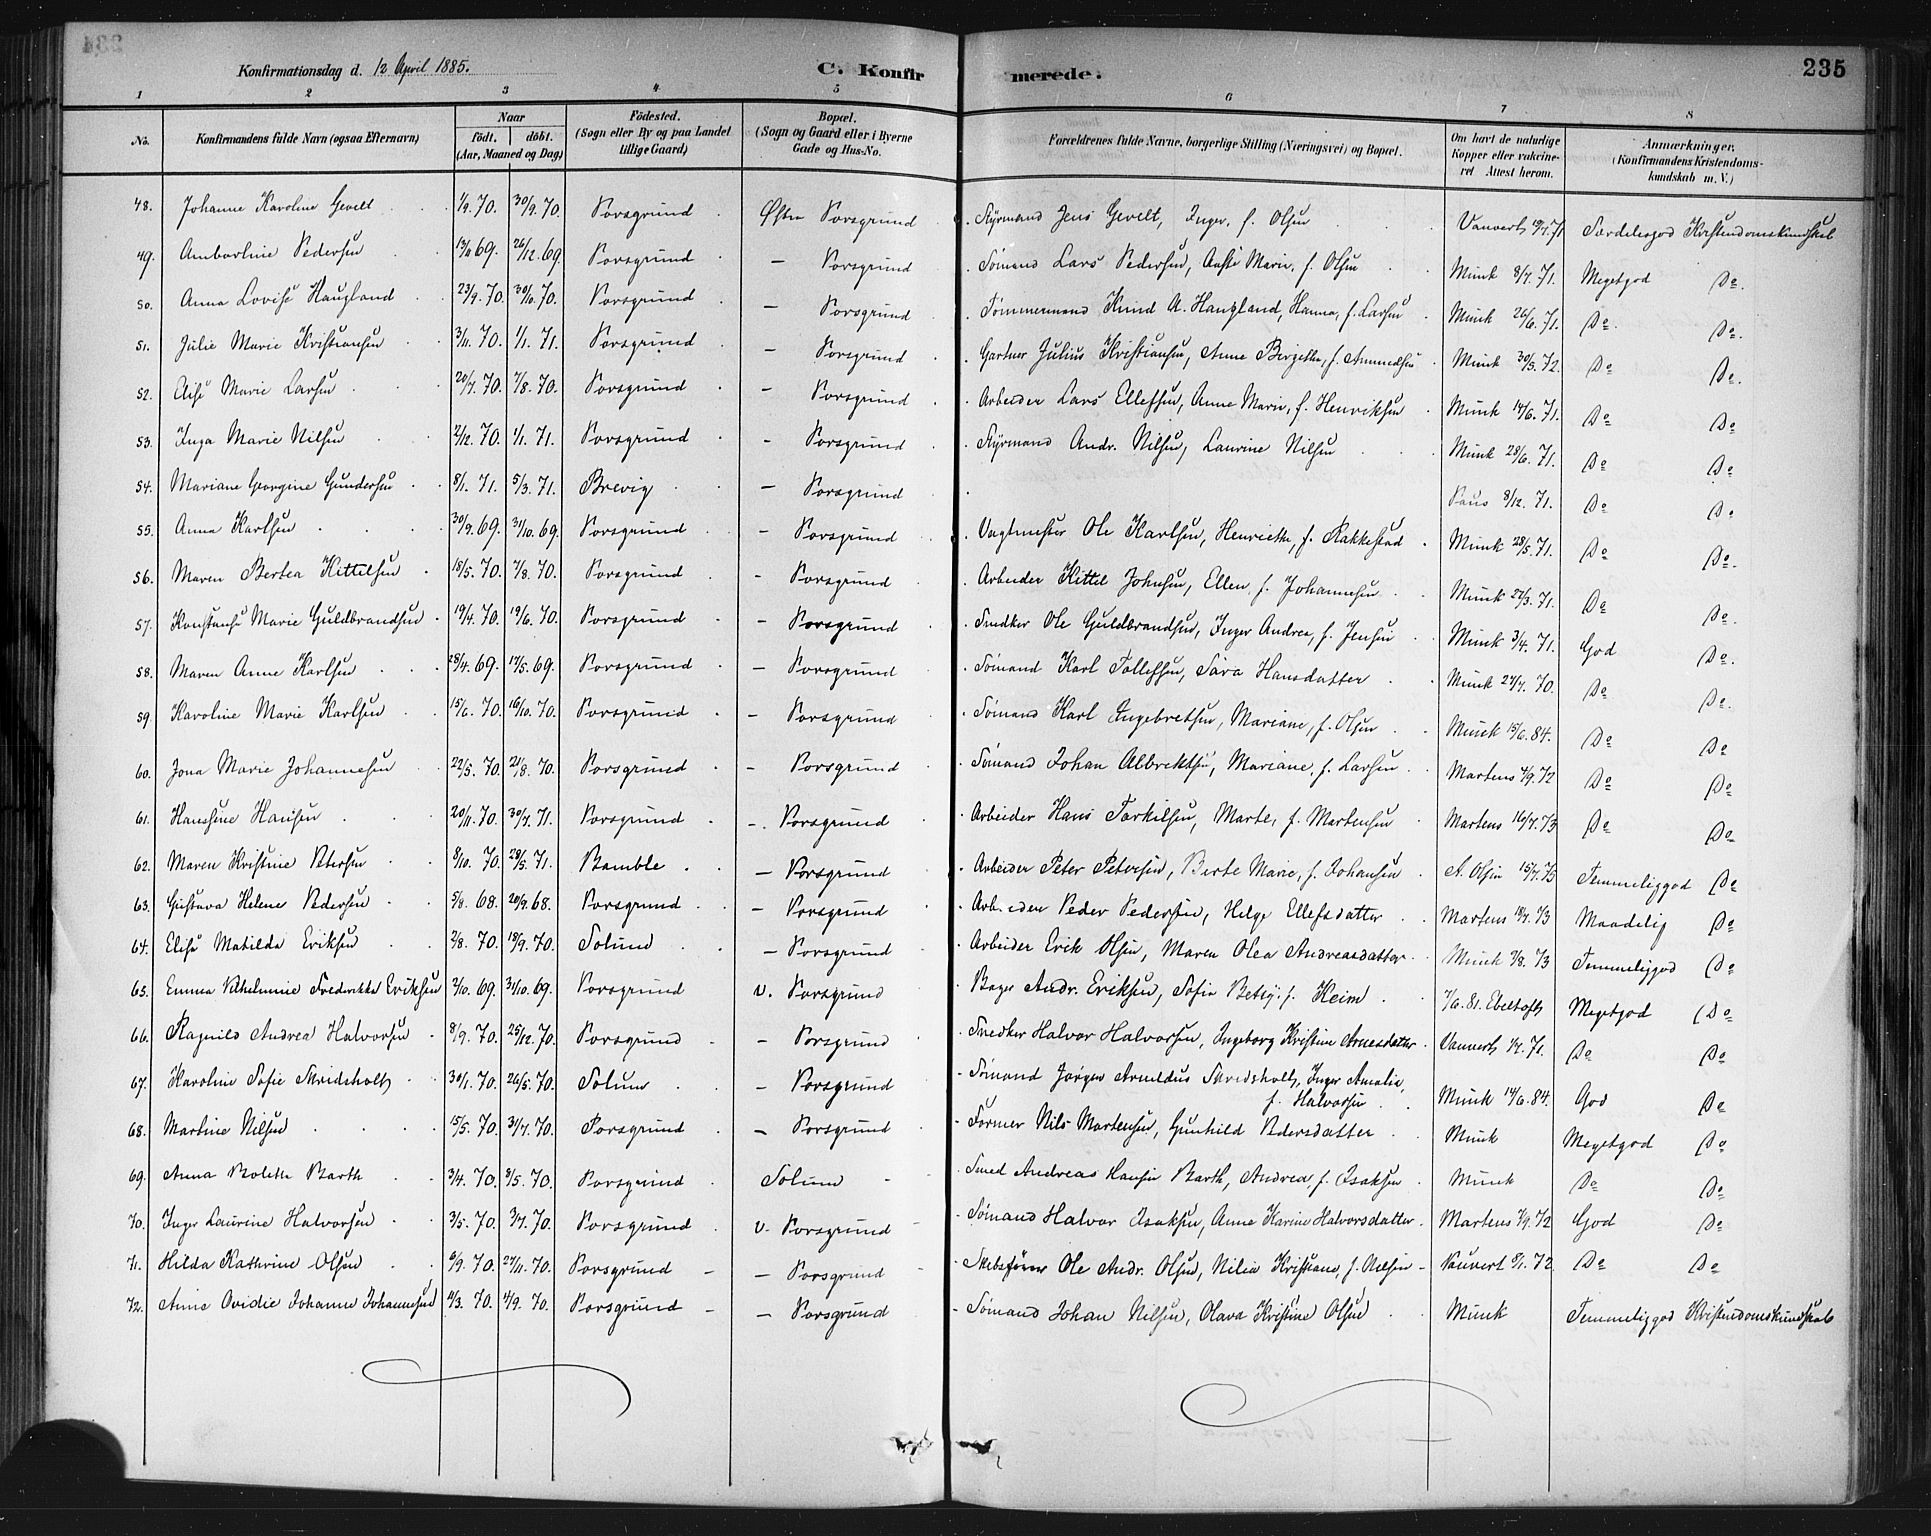 Konfirmationsdag d. 12 April 1885. C. Konfirmerede. 235
1 2 3 4 5 6 7 8
No. Konfirmandens fulde Navn (ogsaa Efternavn) Naar födt. döbt. (Aar, Maaned og Dag) Födested. (Sogn eller By og paa Landet tillige Gaard) Bopæl. (Sogn og Gaard eller i Byerne Gade og Hus-No. Forældrenes fulde Navne, borgerlige Stilling (Næringsvei) og Bopæl. Om havt de naturlige Kopper eller vakcineret Attest herom. Anmærkninger. (Konfirmandens Kristendomskundskab m. V.)
48. Johanne Karoline Gevelt 1/9. 70. 30/9. 70. Porsgrund Østre Porsgrund Styrmand Jens Gevelt, Inger, f. Olsen Vauvert 71 Særdelesgod Kristendomskundskab
49. Amborline Pedersen 69. 26/12. 69 Porsgrund — Porsgrund Sømand Lars Pedersen, Aaste Marie, f. Olsen Munk 8/7. 71. Megetgod Do.
50. Anna Lovise Haugland 23/9. 70. 30/10. 70. Porsgrund — Porsgrund Tømmermand Knud A. Haugland, Hanna, f. Larsen Munk 26/6. 71. Do. Do.
51. Julie Marie Kristiansen 3/11. 70. 1/1. 71. Porsgrund — Porsgrund Gartner Julius Kristiansen, Anne Birgethe, f. Ammundsen Munk 30/5. 72. Do Do.
52. Elise Marie Larsen 20/7. 70. 7/8. 70. Porsgrund — Porsgrund Arbeider Lars Ellefsen, Anne Marie, f. Henriksen Munk 14/6. 71. Do Do
53. Inga Marie Nilsen 2/12. 70. 1/1. 71. Porsgrund — Porsgrund Styrmand Andr. Nilsen, Laurine Nilsen Munk 28/6. 71. Do Do
54. Mariane Georgine Gundersen 8/1. 71. 5/3. 71. Brevig — Porsgrund Paus 8/12. 71. Do Do
55. Anna Karlsen 30/9. 69. 31/10. 69. Porsgrund — Porsgrund Vagtmester Ole Karlsen, Henriette, f. Rakkestad Munk 28/5. 71. Do Do.
56. Maren Bertea Kittelsen 18/5. 70. 7/8. 70. Porsgrund — Porsgrund Arbeider Kittil Johnsen, Ellen, f. Johannesen Munk 27/3. 71. Do Do.
57. Konstanse Marie Guldbrandsen 19/4. 70. 19/6. 70. Porsgrund — Porsgrund Snedker Ole Guldbrandsen, Inger Andrea, f. Jensen Munk 3/4. 71. God Do.
58. Maren Anne Karlsen 28/4. 69. 17/5. 69. Porsgrund — Porsgrund Sømand Karl Tollefsen, Sara Hansdatter Munk 27/7. 70. Do Do.
59. Karoline Marie Karlsen 15/6. 70. 16/10. 70. Porsgrund — Porsgrund Sømand Karl Ingebretsen, Mariane, f. Olsen Munk 15/6. 84. Do Do
60. Jona Marie Johannesen 22/5. 70. 21/8. 70. Porsgrund — Porsgrund Sømand Johan Albrektsen, Mariane, f. Larsen Martens 4/9. 72 Do Do
61. Hansine Hansen 20/11. 70. 30/7. 71. Porsgrund — Porsgrund Arbeider Hans Tarkilsen, Marte, f. Martensen Martens 16/7. 73 Do Do
62. Maren Kristine Petersen 8/10. 70. 28/5. 71. Bamble — Porsgrund Arbeider Peter Petersen, Berte Marie, f. Johansen A. Olsen 15/7. 75 Temmeliggod Do
63. Gustava Helene Pedersen 5/8. 68. 20/9. 68. Porsgrund — Porsgrund Arbeider Peder Pedersen, Helge Ellefsdatter Martens 73 Maadelig Do
64. Elise Matilda Eriksen 2/8. 70. 18/9. 70. Solum — Porsgrund Arbeider Erik Olsen, Maren Olea Andreasdatter Munk 73 Temmeliggod Do
65. Emma Vilhelmine Frederikke Eriksen 2/10. 69. 31/10. 69. Porsgrund V. Porsgrund Bager Andr. Eriksen, Sofie Betsy, f. Heim 7/6. 81. Ebeltoft Megetgod Do
66. Ragnild Andrea Halvorsen 8/9. 70. 25/12. 70. Porsgrund — Porsgrund Snedker Halvor Halvorsen, Ingeborg Kristine Arnesdatter Vauvert 71. Do Do
67. Karoline Sofie Skridsholt 30/1. 70. 26/5. 70. Solum — Porsgrund Sømand Jørgen Arnoldus Skridsholt, Inger Amalie, f. Halvorsen Munk 14/6. 84. God Do
68. Martine Nilsen 15/5. 70. 31/7. 70. Porsgrund — Porsgrund Former Nils Martensen, Gunhild Pedersdatter Munk Megetgod Do
69. Anna Bolette Barth 3/4. 70. 8/5. 70. Porsgrund Solum Smed Andreas Hansen Barth, Andrea, f. Isaksen Munk Do Do
70. Inger Laurine Halvorsen 3/5. 70. 3/7. 70. Porsgrund V. Porsgrund Sømand Halvor Isaksen, Anne Karine Halvorsdatter Martens 72 God Do
71. Hilda Kathrine Olsen 6/9. 70. 27/11. 70. Porsgrund — Porsgrund Skibsfører Ole Andr. Olsen, Nilia Kristiane, f. Nilsen Vauvert 8/1. 72 Do Do
72. Anne Ovidie Johanne Johannesen 11/3. 70. 4/9. 70. Porsgrund — Porsgrund Sømand Johan Nilsen, Olava Kristine Olsen Munk Temmeliggod Kristendomskundskab